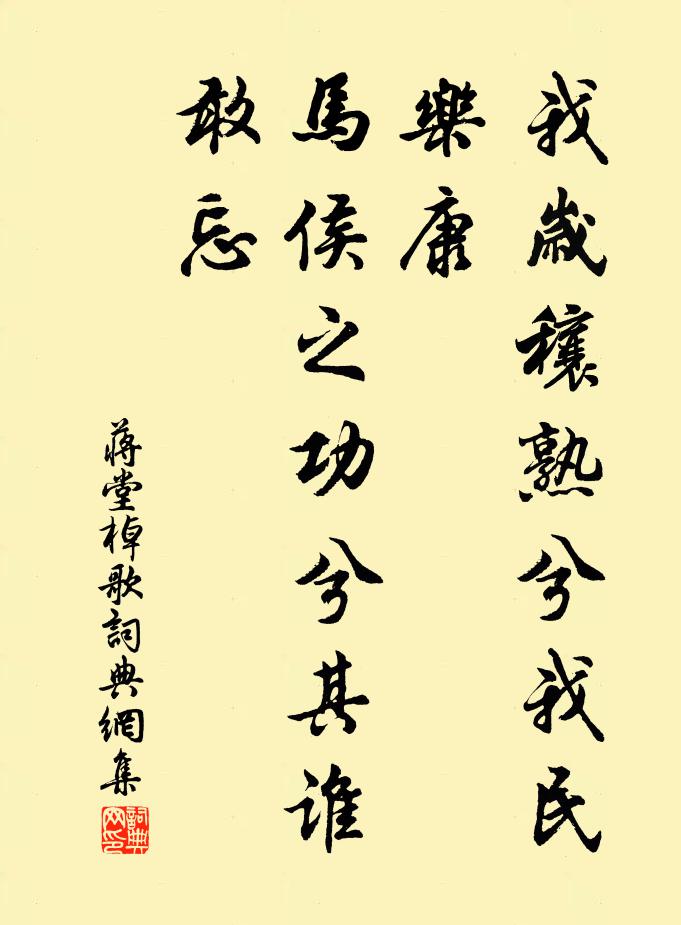 我歲穰熟兮我民
樂康
馬侯之功兮其誰
敢忘
蔣堂棹歌詞典網集
詞典網印